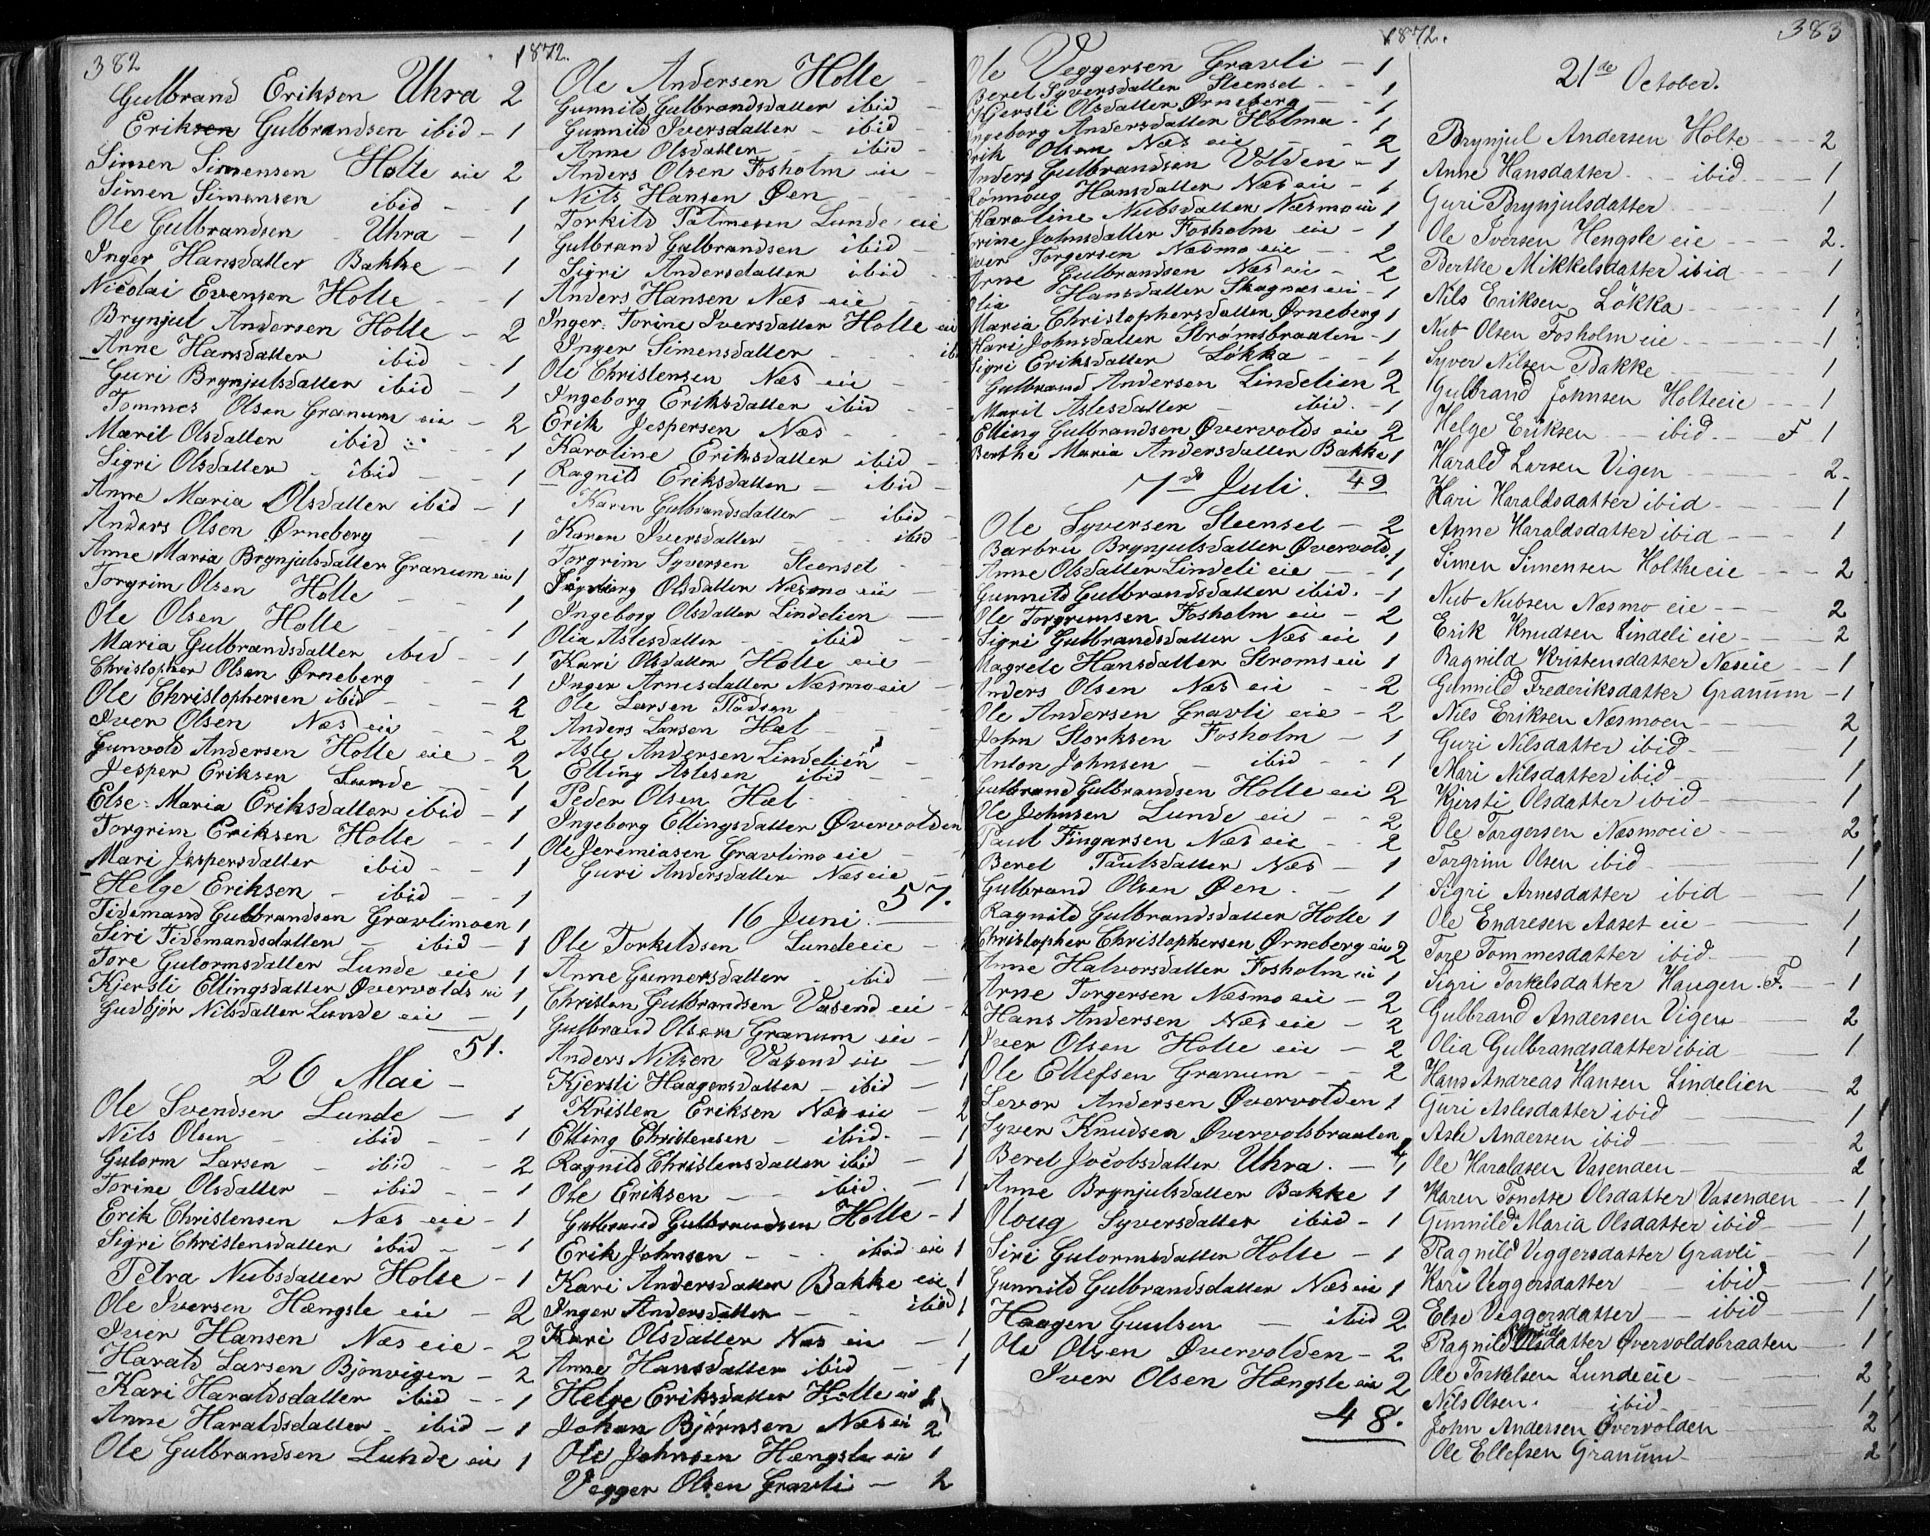 382
1872.
Gulbrand Eriksen Uhra 2
Eriksen Gulbrandsen ibid - 1
Simen Simensen Holte eie 2
Simen Simensen ibid - 1
Ole Gulbrandsen Uhra - 1
Inger Hansdatter Bakke - 1
Nicolai Evensen Holte - 1
Brynjul Andersen Holte - 2
Anne Hansdatter ibid - 1
Guri Brynjulsdatter ibid - 1
Tommes Olsen Granum eie - 2
Marit Olsdatter ibid - 1
Sigri Olsdatter - ibid - 1
Anne Maria Olsdatter ibid - 1
Anders Olsen Ørneberg - 1
Anne Maria Brynjulsdatter Granum eie 1
Torgrim Olsen Holte - - 1
Ole Olsen Holte - - 1
Maria Gulbrandsdatter ibid - 1
Christopher Olsen Ørneberg - 1
Ole Christophersen ibid - - 2
Iver Olsen Næs eie - - 2
Gunvold Andersen Holte eie - 2
Jesper Eriksen Lunde - 1
Else Maria Eriksdatter ibid - 1
Torgrim Eriksen Holte - - 1
Mari Jespersdatter ibid - - 1
Helge Eriksen - ibid - - 1
Tidemand Gulbrandsen Gravlimoen 1
Siri Tidemandsdatter - ibid - 1
Tore Gutormsdatter Lunde eie 1
Kjersti Ellingsdatter Øvervolds eie 1
Gudbjør Nilsdatter Lunde eie - 1
51.
26 Mai -
Ole Svendsen Lunde - 1
Nils Olsen - ibid - - 1
Gutorm Larsen - ibid - - 2
Torine Olsdatter - ibid - - 1
Erik Christensen Næs eie - 1
Sigri Christensdatter ibid - - 1
Petra Nubsdatter Holte - 1
Ole Iversen Hængsle eie - 2
Iver Hansen Næs eie - 2
Harald Larsen Bjönvigen - 2
Kari Haraldsdatter ibid - - 1
Anne Haraldsdatter - ibid - 1
Ole Gulbrandsen Lunde eie 1
Ole Andersen Holte -
Gunnild Gulbrandsdatter ibid -
Gunnild Iversdatter - ibid -
Anne Olsdatter - - ibid -
Anders Olsen Fosholm eie -
Nils Hansen Øen - - -
Torkild Palmesen Lunde eie
Gulbrand Gulbrandsen ibid -
Sigri Andersdatter ibid -
Anders Hansen Næs eie -
Inger Torine Iversdatter Holte eie
Inger Simensdatter - - ibid
Ole Christensen Næs eie
Ingeborg Eriksdatter ibid - -
Erik Jespersen Næs - -
Karoline Eriksdatter ibid -
Ragnild Eriksdatter - ibid -
Karen Gulbrandsdatter - ibid -
Karen Iversdatter - - ibid -
Torgrim Syversen Steenset
Ingeborg Olsdatter Næsmo eie -
Ingeborg Olsdatter Lindelien -
Olia Aslesdatter - - ibid
Kari Olsdatter Holte eie -
Inger Arnesdatter Næsmo eie -
Ole Larsen Flodsen - -
Anders Larsen Hæl - -
Asle Andersen Lindelien -
Elling Aslesen ibid - -
Peder Olsen Hæl - -
Ingeborg Ellingsdatter Øvervolden
Ole Jeremiasen Gravlimo eie - -
Guri Andersdatter Næs eie -
57.
16 Juni.
Ole Torkeldsen Lunde eie -
Anne Gunnersdatter - ibid - 1
Christen Gulbrandsen Vasend eie -
Gulbrand Olsen Granum eie - 1
Anders Nilsen Vasend eie - 1
Kjersti Haagensdatter - ibid - 1
Kristen Eriksen Næs eie - 2
Elling Christensen - ibid. 1
Ragnild Christensdatter ibid - 1
Ole Eriksen - - ibid. - 1
Gulbrand Gulbrandsen Holte - 1
Erik Johnsen - - ibid eie 1
Kari Andersdatter Bakke eie 1
Inger Andersdatter - - ibid 1
Kari Olsdatter Næs eie - 1
Anne Hansdatter ibid - - 1
Helge Eriksdatter Holte eie 1
Johan Bjørnsen Næs eie 2
Ole Johnsen Hængsle eie 1
Vegger Olsen Gravli - 2
1872.
383
Ole Veggersen Gravli - 1
Beret Syversdatter Steenset - - 1
Kjersti Olsdatter Ørneberg - - 1
Ingeborg Andersdatter Holma - 1
Erik Olsen Næs eie - - 2
Anders Gulbrandsen Volden - 1
Rønnoug Hansdatter Næs eie - 1
Karoline Nubsdatter Næsmo eie 1
Torine Johnsdatter Fosholm eie - 1
Iver Torgersen Næsmo eie - 2
Arne Gulbrandsen Næs eie - 2
Olia Hansdatter Skagnæs eie - 1
Maria Christophersdatter Ørneberg 1
Kari Johnsdatter Strømsbraaten - 1
Sigri Eriksdatter Løkka - - 1
Gulbrand Andersen Lindelien 2
Marit Aslesdatter - ibid. - 1
Elling Gulbrandsen Øvervolds eie 2
Berthe Maria Andersdatter Bakke 1
49
7de Juli.
Ole Syversen Steenset - 2
Barbru Brynjulsdatter Øvervold 1
Anne Olsdatter Lindeli eie - - 1
Gunnild Gulbrandsdatter ibid. - 1
Ole Torgrimsen Fosholm eie - 2
Sigri Gulbrandsdatter Næs eie 1
Magrete Hansdatter Stroms eie 1
Anders Olsen Næs eie - - 2
Ole Andersen Gravli eie - 2
John Storksen Fosholm - 1
Anton Johnsen - ibid - - 1
Gulbrand Gulbrandsen Holte eie 2
Ole Johnsen Lunde eie - - 2
Paul Fingarsen Næs eie - - 2
Beret Paulsdatter Næs - 1
Gulbrand Olsen Øen - - 1
Ragnild Gulbrandsdatter Holte 1
Christopher Christophersen Ørneberg eie 2
Anne Halvorsdatter Fosholm eie 1
Arne Torgersen Næsmo eie - 2
Hans Andersen Næs eie - 2
Iver Olsen Holte eie - 2
Ole Ellefsen Granum - - 2
Sevor Andersen Øvervolden 1
Syver Knudsen Øvervolsbraaten 2
Beret Jocobsdatter Uhra. - 1
Anne Brynjulsdatter Bakke 1
Oloug Syversdatter ibid - 1
Siri Gutormsdatter Holte - 1
Gunnild Gulbrandsdatter Næs eie 1
Haagen Guulsen - ibid 2
Ole Olsen Øvervolden - 2
Iver Olsen Hængsle eie 2
48.
21de October.
Brynjul Andersen Holte - - - 2
Anne Hansdatter - - ibid - - - 1
Guri Brynjulsdatter - - - 1
Ole Iversen Hengsle eie - - - 2.
Berthe Mikkelsdatter ibid - - - 1
Nils Eriksen Lökka - - - 1
Nub Olsen Fosholm eie - - - 1
Syver Nilsen Bakke - - - 1
Gulbrand Johnsen Holteeie - - 1
Helge Eriksen - - ibid. - - F 1
Harald Larsen Vigen - - 2.
Kari Haraldsdatter ibid - - - 1
Anne Haraldsdatter ibid - - - 1
Simen Simensen Holtheeie - - 2
Nub Nubsen Næsmo eie - - - 2
Erik Knudsen Lindeli eie - - 2
Ragnild Kristensdatter Næseie - - 1
Gunnild Frederiksdatter Granum - 1
Nils Eriksen Næsmoen - - 2
Guri Nilsdatter ibid - - 1
Mari Nilsdatter ibid - - 1
Kjersti Olsdatter ibid - - 1
Ole Torgersen Næsmoeie - - 2
Torgrim Olsen ibid - - 1
Sigri Arnesdatter ibid - - 1
Ole Endresen Aaset eie - - 1
Tore Tommesdatter ibid - - 1
Sigri Torkelsdatter Haugen. F. - - 1
Gulbrand Andersen Vigen - - 2
Olia Gulbrandsdatter ibid - - 1
Hans Andreas Hansen Lindelien - 2
Guri Aslesdatter ibid - - 1
Asle Andersen ibid - - 2
Ole Haraldsen Vasenden - - 2
Karen Tonette Olsdatter Vasenden - 1
Gunnild Maria Olsdatter ibid - - 1
Ragnild Veggersdatter Gravli - 1
Kari Veggersdatter - ibid - 1
Else Veggersdatter - ibid - 1
Ragnild Olsdatter Øvervoldsbraaten - 1
Ole Torkelsen Lundeeie - - 2
Nils Olsen. ibid - - 1
John Andersen Øvervolden - 2
Ole Ellefsen Granum - - 2